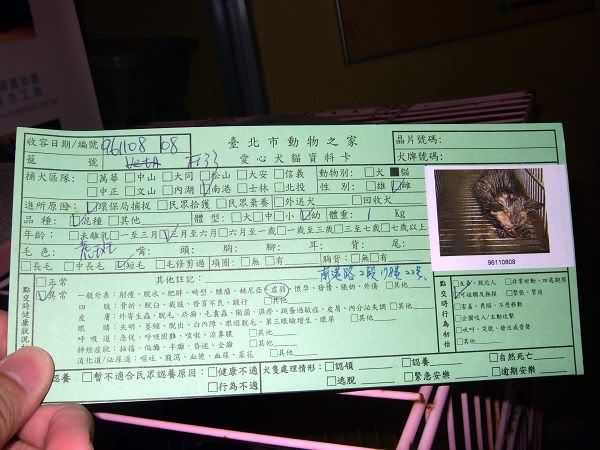 收容日期/編號 961108 08 臺北市動物之家 晶片號碼:
籠 號 愛心犬貓資料卡 犬牌號碼:
捕犬區隊: □萬華 □中山 □大同 □松山 □大安 □信義 動物別: □犬 ■貓
□中正 □文山 □內湖 ☑南港 □士林 □北投 性 別: □雄 ☑雌
進所原因: ☑環保局捕捉 □民眾拾獲 □民眾棄養 □外送犬 □回收犬
品 種: ☑混種 □其他 體 型: □大 □中 □小 ☑幼 體重: 1 Kg
年齡: □未離乳 □一至三月 ☑三月至六月 □六月至一歲 □一歲至三歲 □三至七歲 □七歲以上
毛 色: 嘴: 頭: 胸: 腳: 耳: 背: 尾:
□長毛 □中長毛 ☑短毛 □毛修剪過 項圈: □無 □有 胸背: □無 □有
96110808
點交時健康狀況
□正常 其他註記: 南港路2段178巷22號
☑異常 一般外表: 削瘦、脫水、肥胖、畸型、腫瘤、赫尼亞、虛弱、懷孕、發情、厭奶、外傷 □其他
四 肢: 骨折、脫臼、歲肢、發育不良、跛行 □其他
皮 膚: 外寄生蟲、脫毛、疥癬、毛囊蟲、黴菌、濕疹、跳蚤過敏症、皮屑、內分泌失調 □其他
眼 睛: 失明、萎縮、脫出、白內障、眼瞼脫毛、第三眼瞼增生、眼屎 □其他
呼 吸 道: 急促、呼吸困難、咳嗽、流鼻膿 □其他
神經症狀: 抽搐、偏癱、半癱、昏迷、全癱 □其他
消化道/泌尿道: 嘔吐、腹瀉、血便、血尿、萊花 □其他
點交時行為初估
□友善、親近人 □非常好動、四處觀察
☑可碰觸及撫摸 □緊張、緊迫
□害羞、畏縮、不思移動
□企圖咬人/主動攻擊
□吠叫、哭號、發出威脅聲
□其他
認養 □暫不適合民眾認養原因: □健康不適 □行為不適
犬隻處理情形: □認領 □認養 □自然死亡
□逃脫 □緊急安樂 □逾期安樂